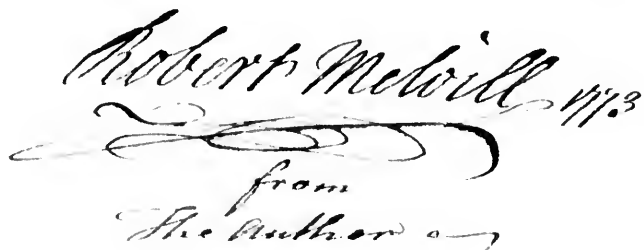 Robert Melvill 1773
from
The Author